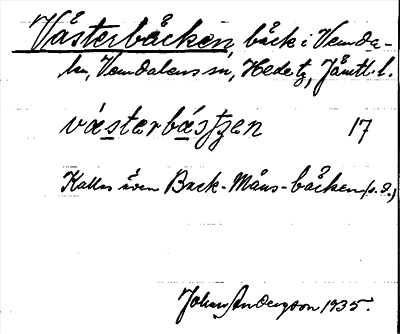 Västerbäcken, bäck i Vemda-
len, Vemdalens sn, Hede tg, Jämtl. l.
västerbäsʃzen 17
Kallas även Back-Måns-bäcken (s. d.)
Johan Anderzson 1935.